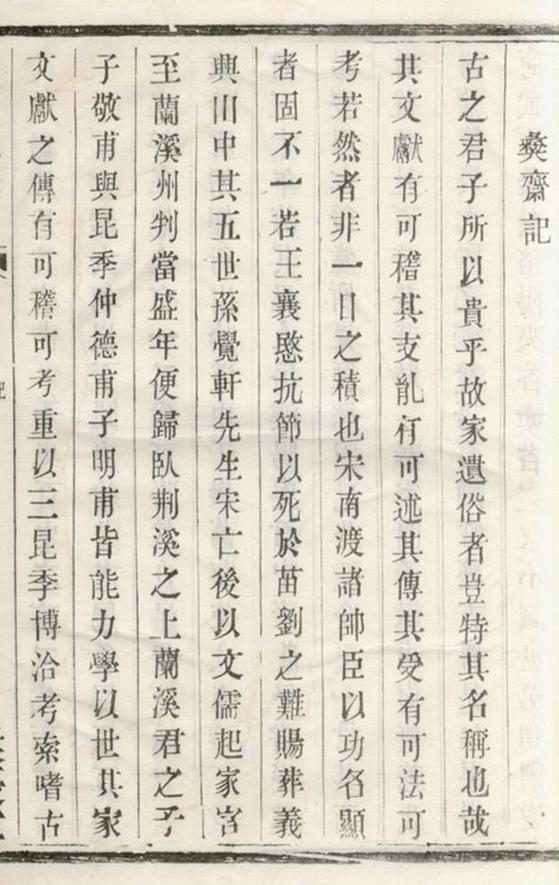 彝齋記
古之君子所以貴乎故家遺俗者豈特其名稱也哉
其文獻有可稽其支胤有可述其傳其受有可法可
考若然者非一日之積也宋南渡諸帥臣以功名顯
者固不一若王襄愍抗節以死於苗劉之難賜葬義
興山中其五世孫覺軒先生宋亡後以文儒起家官
至蘭溪州判當盛年便歸臥荆溪之上蘭溪君之子
子敬甫與昆季仲德甫子明甫皆能力學以世其家
文獻之傳有可稽可考重以三昆季博洽考索嗜古